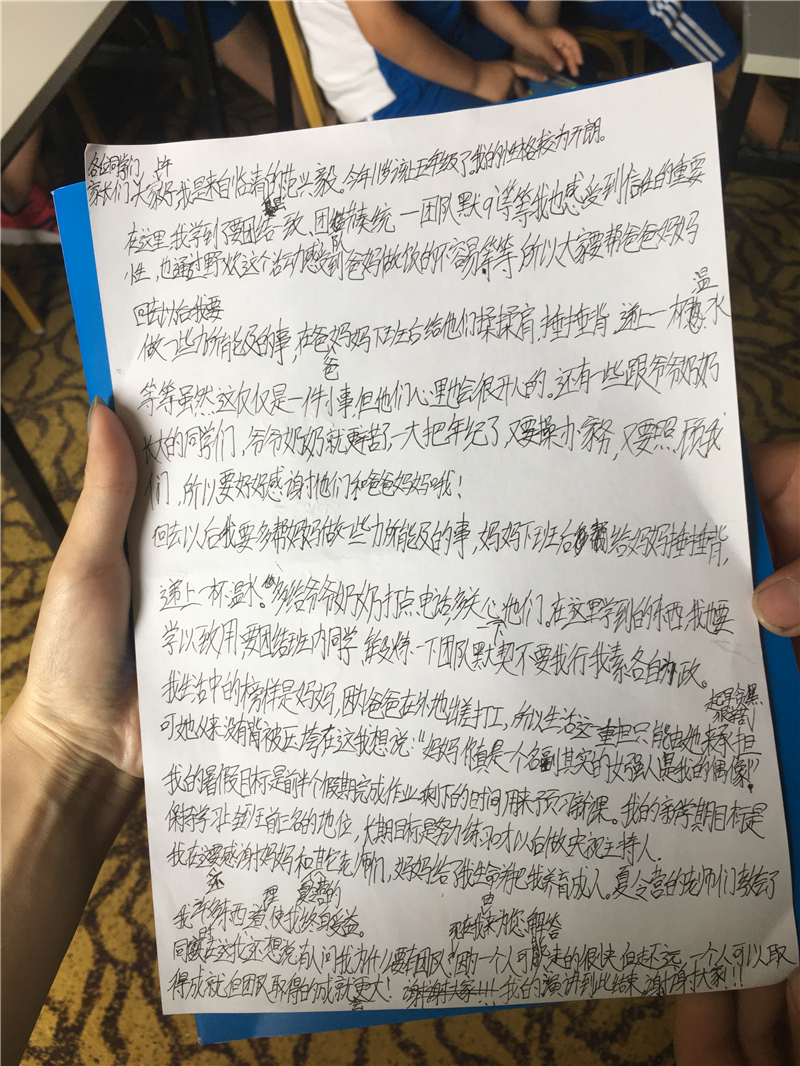 各位同学们 上午
家长们 大家好我是来自临清的范兴毅。今年11岁该上五年级了。我的性格较为开朗。
在这里我学到了要团结一致、团结统一团队默q等等我也感受到信任的重要
性,也通过野炊这个活动感受到爸妈做饭的不容易等等,所以大家要帮爸爸妈妈
回去以后我要 温
做一些力所能及的事,在爸妈妈下班后给他们揉揉肩,捶捶背 递上一杯水
爸
等等虽然这仅仅是一件小事,但他们心里也会很开心的。还有一些跟爷爷奶奶
长大的同学们,爷爷奶奶就更苦了,一大把年纪了,又要操办家务,又要照顾我
们,所以要好好感谢他们和爸爸妈妈哦!
回去以后我要多帮妈妈做一些力所能及的事,妈妈下班后给妈妈捶捶背,
递上一杯温水。多给爷爷奶奶打点电话多关心他们。在这里学到的东西,我也要
学以致用,要团结班内同学,锻炼一下团队默契不要我行我素、各自为政。
我生活中的榜样是妈妈,因为爸爸在外地出差打工,所以生活这一重担只能由她来承担
起早贪黑
可她从来没有背被压垮在这我想说:“妈妈你真是一个名副其实的女强人是我的偶像!”
我的暑假目标是前半个假期完成作业剩下的时间用来预习新课。我的新学期目标是
保持学习上班前三名的地位,长期目标是努力练习口才以后做央视主持人.
我在这要感谢妈妈和其它老师们,妈妈给了我生命并把我养育成人。夏令营的老师们教会了
我许多东西道理 使我终身受益。 夏令营的
现在我来为您解答
同时在这我还想说有人问我为什么要有团队?因为一个人可能走的很快但走不远,一个人可以取
得成就但团队取得的成就更大! 谢谢大家!!! 我的演讲到此结束,谢谢大家!!!